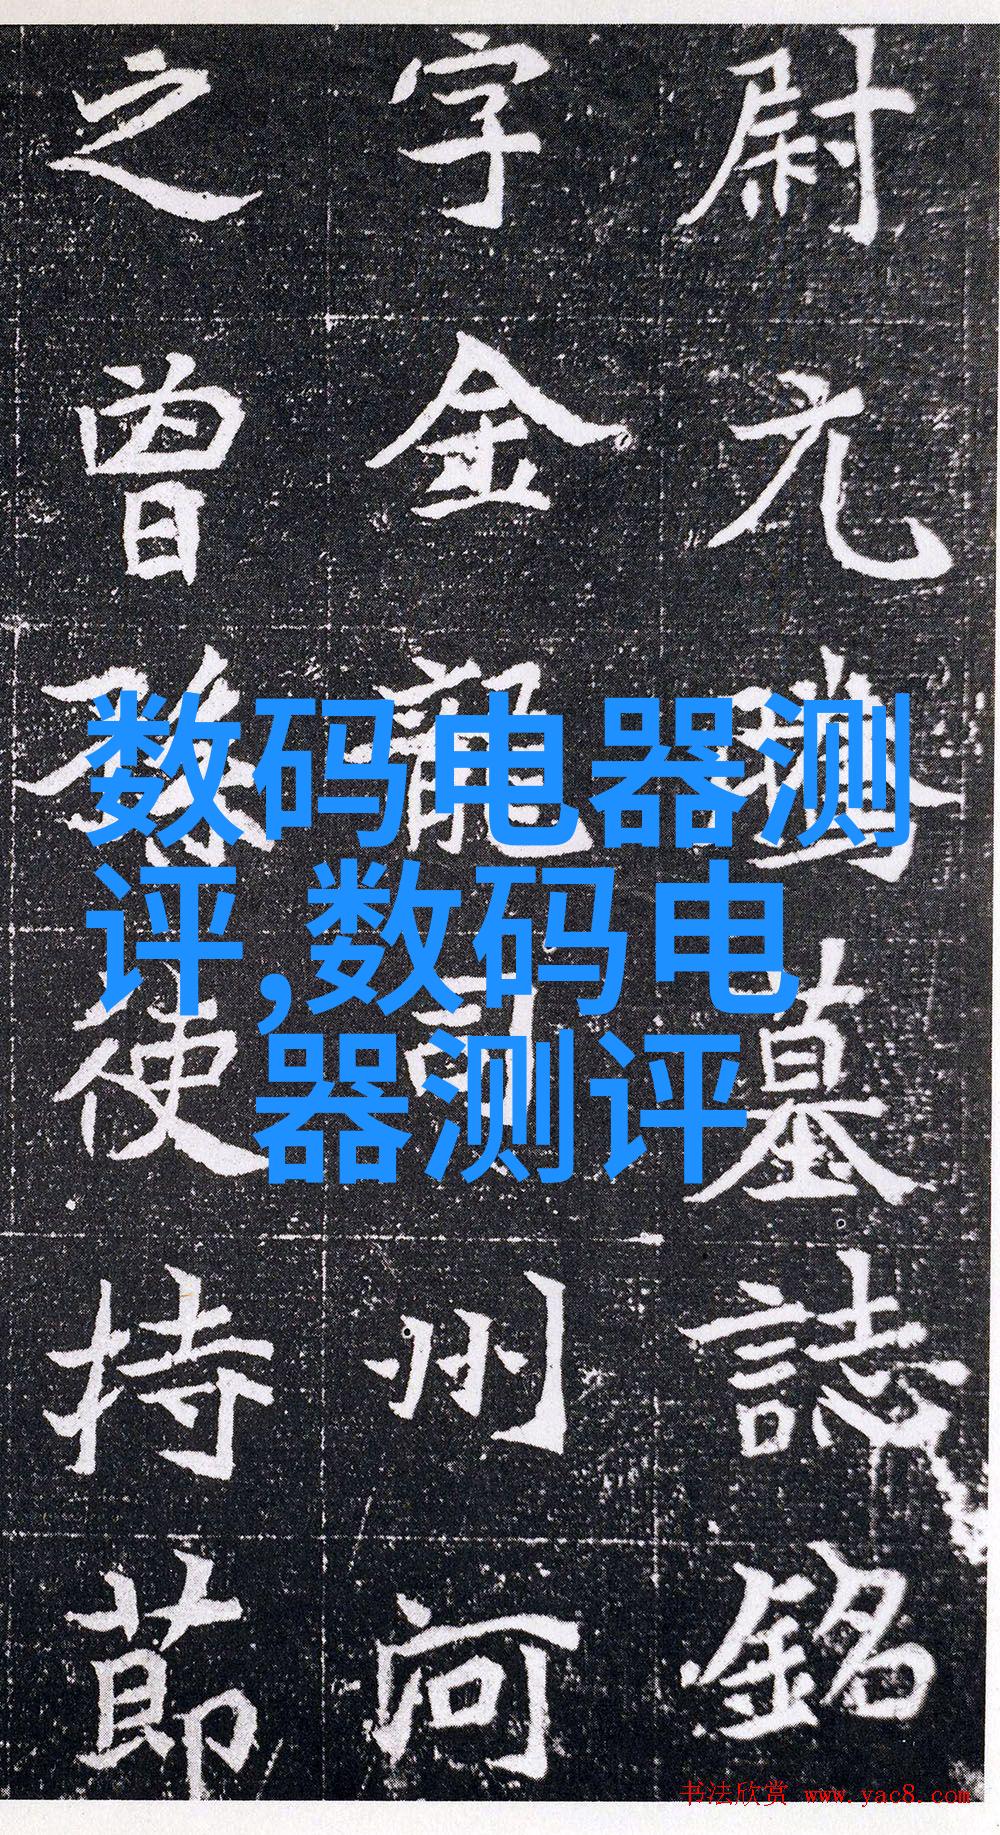 尉元墓誌銘
字金龍司州河
之曾孫使持節
数码电器测
评,数码电
器测评
书法欣赏 www.yac8.com